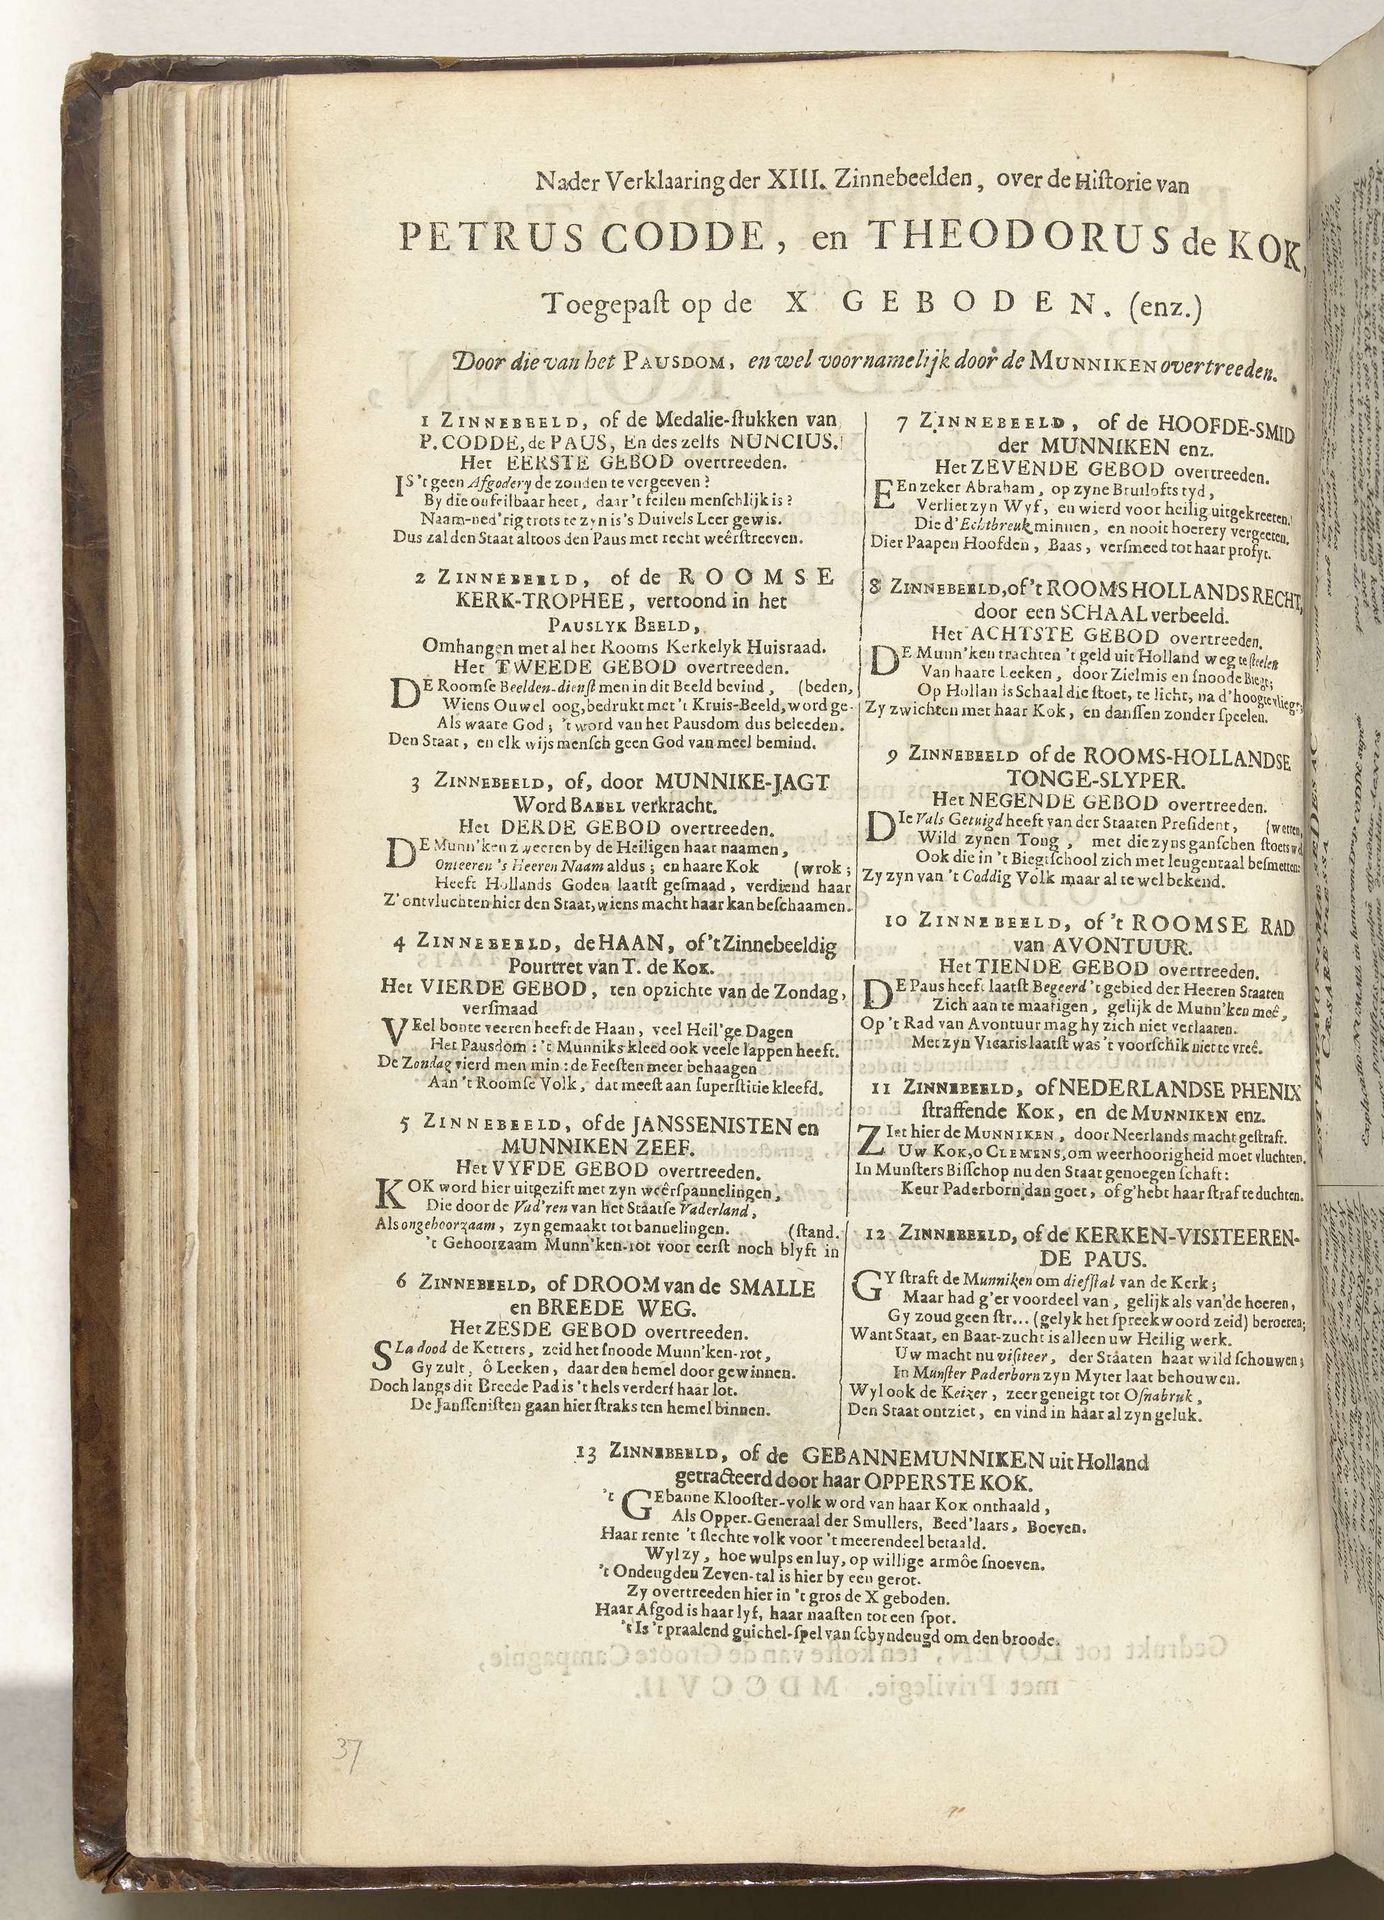 Nader Verklaaring der XIII. Zinnebeelden, over de Historie van
PETRUS CODDE, en THEODORUS de KOK,
Toegepast op de X GEBODEN. (enz.)
Door die van het PAUSDOM, en wel voornamelijk door de MUNNIKEN overtreeden.
1 ZINNEBEELD, of de Medalie-stukken van
P. CODDE, de PAUS, En des zelfs NUNCIUS.
Het EERSTE GEBOD overtreeden.
IS 't geen Afgodery de zonden te vergeeven?
By die onfeilbaar heet, daar 't feilen menschlijk is?
Naam-ned'rig trots te zyn is 's Duivels Leer gewis.
Dus zal den Staat altoos den Paus met recht weêrstreeven.
2 ZINNEBEELD, of de ROOMSE
KERK-TROPHEE, vertoond in het
PAUSLYK BEELD,
Omhangen met al het Rooms Kerkelyk Huisraad.
Het TWEEDE GEBOD overtreeden.
DE Roomse Beelden-dienst men in dit Beeld bevind, (beden,
Wiens Ouwel oog, bedrukt met 't Kruis-Beeld, word ge-
Als waare God; 't word van het Pausdom dus beleeden.
Den Staat, en elk wijs mensch geen God van meel bemind.
3 ZINNEBEELD, of, door MUNNIKE-JAGT
Word BABEL verkracht.
Het DERDE GEBOD overtreeden.
DE Munn'ken zweeren by de Heiligen haar naamen,
Onteeren 's Heeren Naam aldus; en haare Kok (wrok;
Heeft Hollands Goden laatst gesmaad, verdiend haar
Z' ontvluchten hier den Staat, wiens macht haar kan beschaamen.
4 ZINNEBEELD, de HAAN, of 't Zinnebeeldig
Pourtret van T. de KOK.
Het VIERDE GEBOD, ten opzichte van de Zondag,
versmaad
VEel bonte veeren heeft de Haan, veel Heil'ge Dagen
Het Pausdom: 't Munniks kleed ook veele lappen heeft.
De Zondag vierd men min: de Feesten meer behaagen
Aan 't Roomse Volk, dat meest aan superstitie kleefd.
5 ZINNEBEELD, of de JANSSENISTEN en
MUNNIKEN ZEEF.
Het VYFDE GEBOD overtreeden.
KOK word hier uitgezift met zyn weêrspannelingen,
Die door de Vad'ren van het Staatse Vaderland,
Als ongehoorzaam, zyn gemaakt tot bannelingen. (stand.
't Gehoorzaam Munn'ken-rot voor eerst noch blyft in
6 ZINNEBEELD, of DROOM van de SMALLE
en BREEDE WEG.
Het ZESDE GEBOD overtreeden.
SLa dood de Ketters, zeid het snoode Munn'ken-rot,
Gy zult, ô Leeken, daar den hemel door gewinnen.
Doch langs dit Breede Pad is 't hels verderf haar lot.
De Janssenisten gaan hier straks ten hemel binnen.
7 ZINNEBEELD, of de HOOFDE-SMID
der MUNNIKEN enz.
Het ZEVENDE GEBOD overtreeden.
EEn zeker Abraham, op zyne Bruilofts tyd,
Verliet zyn Wyf, en wierd voor heilig uitgekreeten.
Die d'Echtbreuk minnen, en nooit hoerery vergeeten,
Dier Paapen Hoofden, Baas, versmeed tot haar profyt.
8 ZINNEBEELD, of 't ROOMS HOLLANDS RECHT,
door een SCHAAL verbeeld.
Het ACHTSTE GEBOD overtreeden.
DE Munn'ken trachten 't geld uit Holland weg te steelen
Van haare Leeken, door Zielmis en snoode Biegt;
Op Hollan ds Schaal die stoet, te licht, na d'hoogte vliegt;
Zy zwichten met haar Kok, en danssen zonder speelen.
9 ZINNEBEELD of de ROOMS-HOLLANDSE
TONGE-SLYPER.
Het NEGENDE GEBOD overtreeden.
DIe Vals Getuigd heeft van der Staaten President, (wetten,
Wild zynen Tong, met die zyns ganschen stoets
Ook die in 't Biegtschool zich met leugentaal besmetten:
Zy zyn van 't Coddig Volk maar al te wel bekend.
10 ZINNEBEELD, of 't ROOMSE RAD
van AVONTUUR.
Het TIENDE GEBOD overtreeden.
DE Paus heeft laatst Begeerd 't gebied der Heeren Staaten
Zich aan te maatigen, gelijk de Munn'ken meê,
Op 't Rad van Avontuur mag hy zich niet verlaaten.
Met zyn Vicaris laatst was 't voorschik niet te vreê.
11 ZINNEBEELD, of NEDERLANDSE PHENIX
straffende KOK, en de MUNNIKEN enz.
ZIet hier de MUNNIKEN, door Neerlands macht gestraft.
UW KOK, o CLEMENS, om weerhoorigheid moet vluchten.
In Munsters Bisschop nu den Staat genoegen schaft:
Keur Paderborn dan goet, of g'hebt haar straf te duchten.
12 ZINNEBEELD, of de KERKEN-VISITEEREN-
DE PAUS.
GY straft de Munniken om diefstal van de Kerk;
Maar had g'er voordeel van, gelijk als van de hoeren,
Gy zoud geen str... (gelyk het spreekwoord zeid) beroeren;
Want Staat, en Baat-zucht is alleen uw Heilig werk.
Uw macht nu visiteer, der Staaten haat wild schouwen;
In Munster Paderborn zyn Myter laat behouwen.
Wyl ook de Keizer, zeer geneigt tot Osnabruk,
Den Staat ontziet, en vind in haar al zyn geluk.
13 ZINNEBEELD, of de GEBANNE MUNNIKEN uit Holland
getracteerd door haar OPPERSTE KOK.
't GEbanne Klooster-volk word van haar KOK onthaald,
Als Opper-Generaal der Smullers, Beed'laars, Boeven.
Haar rente 't slechte volk voor 't meerendeel betaald.
Wyl zy, hoe wulps en luy, op willige armôe snoeven.
't Ondeugden Zeven-tal is hier by een gerot.
Zy overtreeden hier in 't gros de X geboden.
Haar Afgod is haar lyf, haar naasten tot een spot.
't Is 't praalend guichel-spel van schyndeugd om den broode.
37